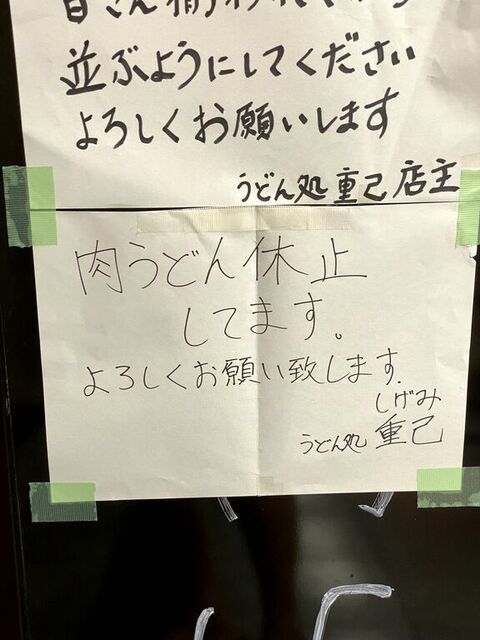 並ぶようにしてください
よろしくお願いします
うどん処 重己 店主
肉うどん休止
してます。
よろしくお願い致します.
しげみ
うどん処 重己